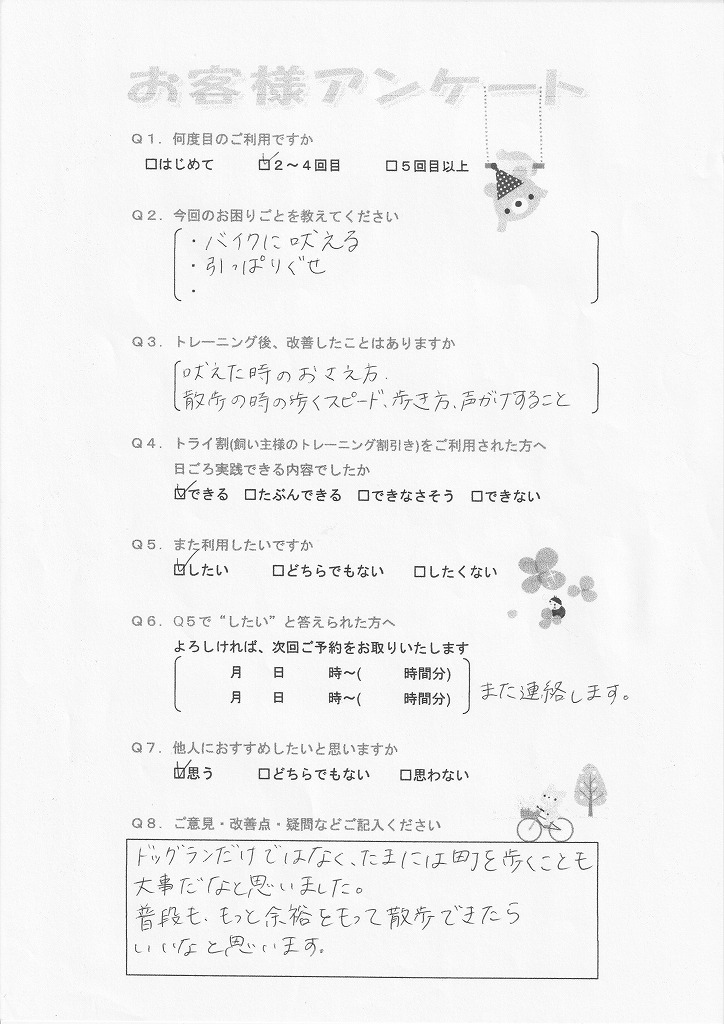 お客様アンケート
Q1. 何度目のご利用ですか
□はじめて ☑2～4回目 □5回目以上
Q2. 今回のお困りごとを教えてください
・バイクに吠える
・引っぱりぐせ
・
Q3. トレーニング後、改善したことはありますか
吠えた時のおさえ方.
散歩の時の歩くスピード、歩き方、声がけすること
Q4. トライ割(飼い主様のトレーニング割引き)をご利用された方へ
日ごろ実践できる内容でしたか
☑できる □たぶんできる □できなさそう □できない
Q5. また利用したいですか
☑したい □どちらでもない □したくない
Q6. Q5で“したい”と答えられた方へ
よろしければ、次回ご予約をお取りいたします
月 日 時～( 時間分)
月 日 時～( 時間分)
また連絡します。
Q7. 他人におすすめしたいと思いますか
☑思う □どちらでもない □思わない
Q8. ご意見・改善点・疑問などご記入ください
ドッグランだけではなく、たまには町を歩くことも
大事だなと思いました。
普段も、もっと余裕をもって散歩できたら
いいなと思います。